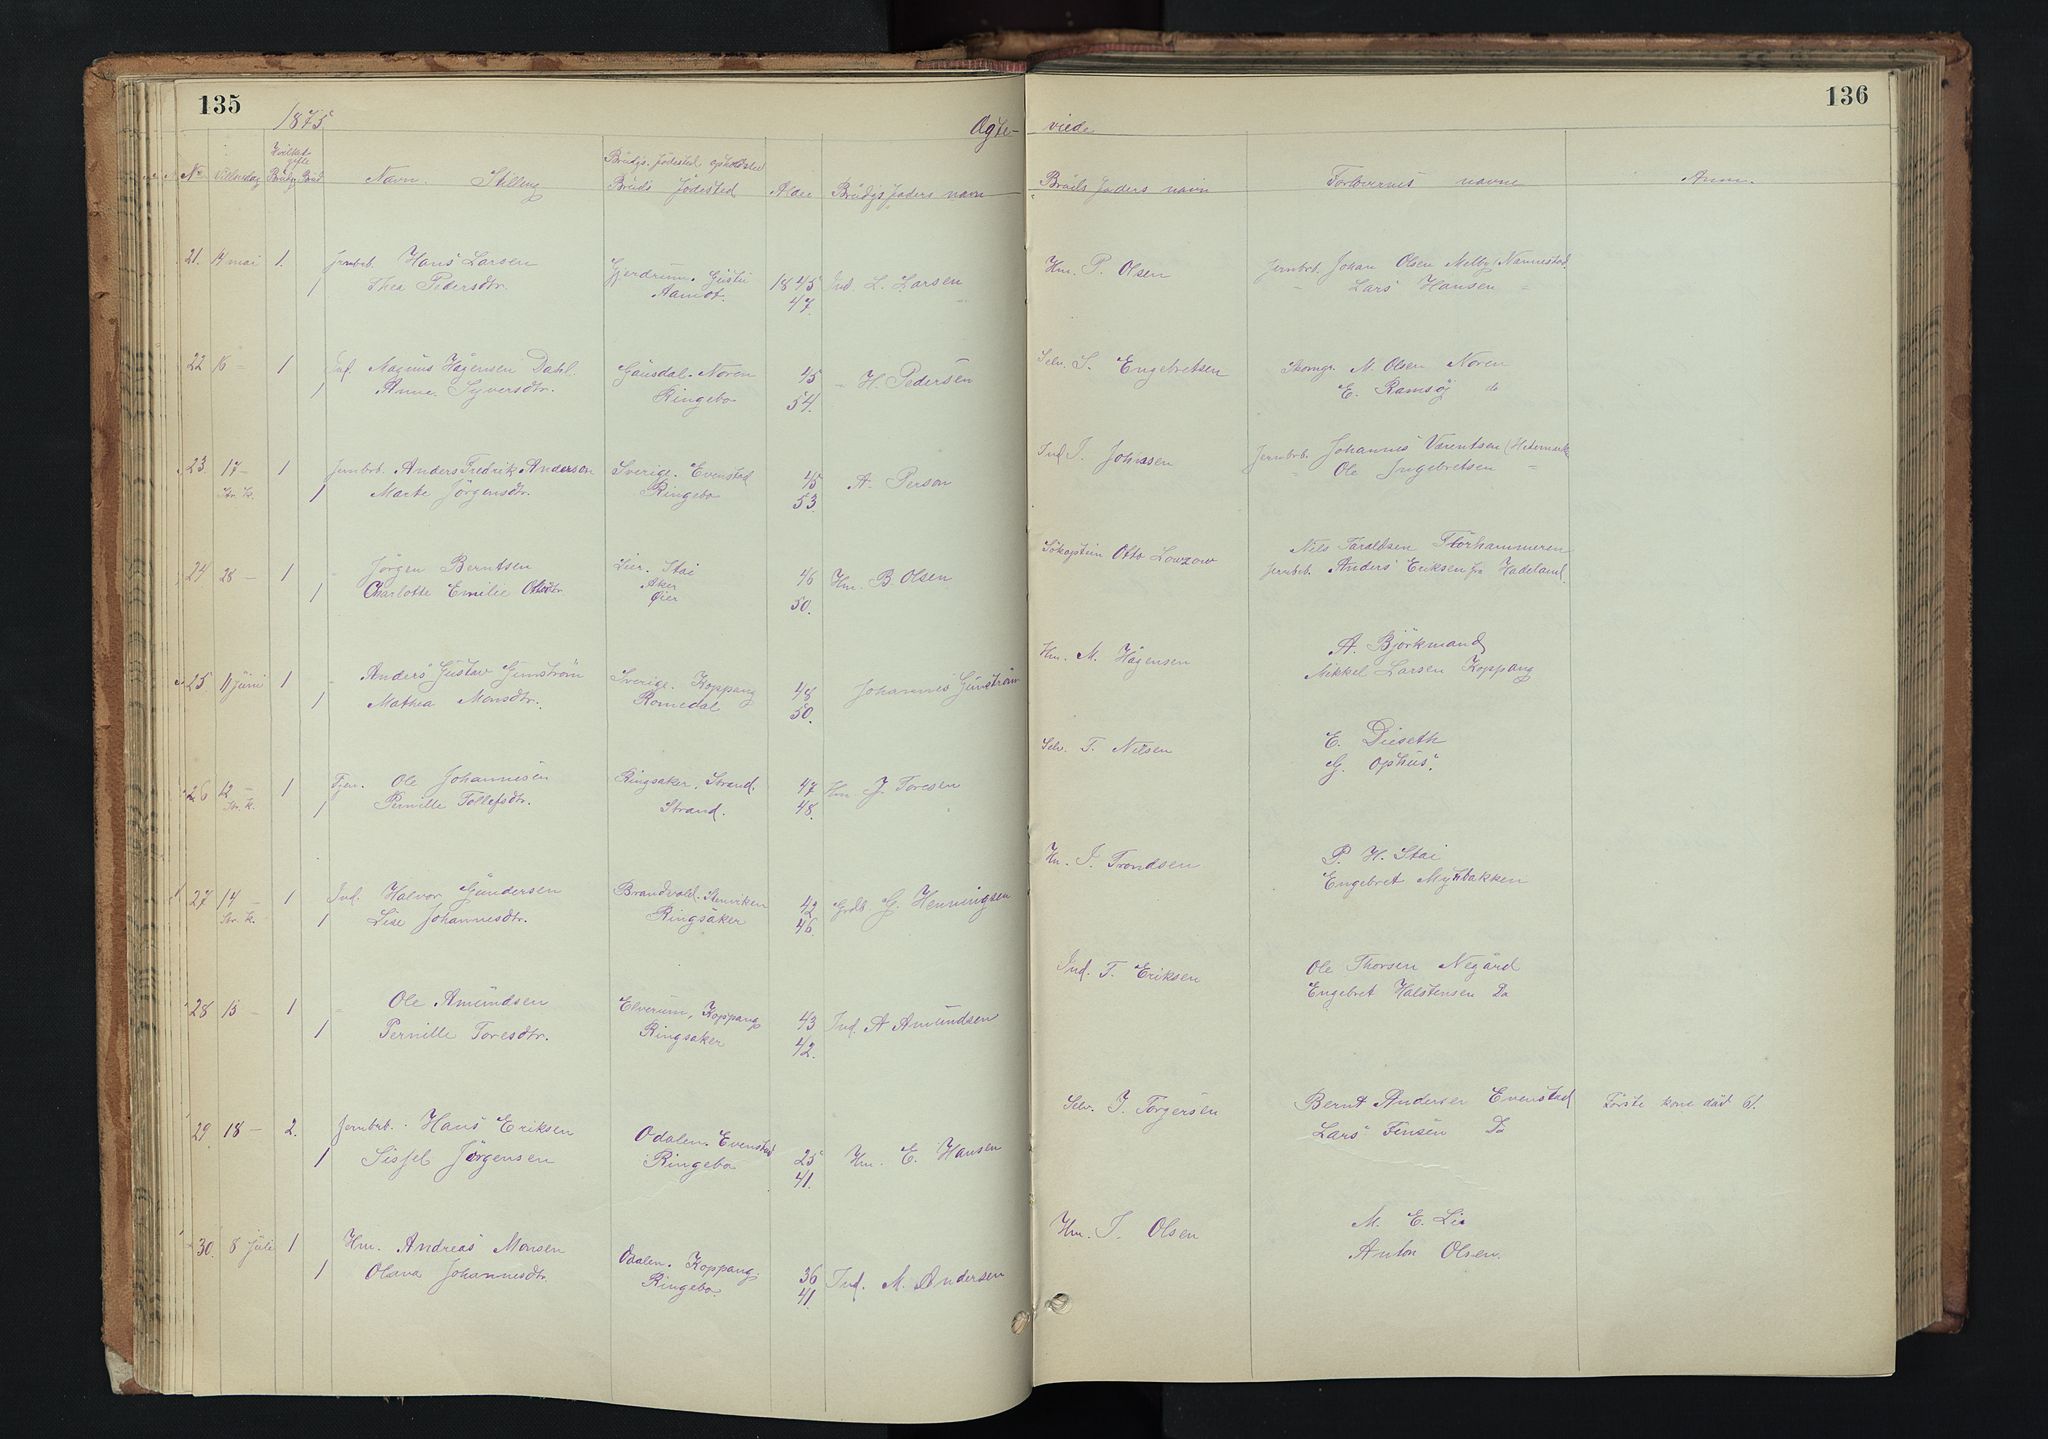 135
136
1875
Ægte- viede
No Vielsesdag Hvilket gifte Brudg. Brud Navn Stilling Brudgs. fødested opholdssted Bruds fødested Alder Brudgs faders navn Bruds faders navn Forlovernes navne Anm.
21. 14 mai 1. Jernbrb. Hans Larsen Gjerdrum. 1845 Ind. L. Larsen Hm. P. Olsen Jernbrb. Johan Olsen Melby
1 Thea Pedersdtr. Aamot. 47. " Lars Hansen "
22 16 - 1 Ind. Magnus Hågensen Dahl. Gausdal. Noren 45 - H. Pedersen Selv. S. Engebretsen M. Olsen Noren
1 Anne Syversdtr. Ringebo 54. E. Ramsöj do
23. 17 - 1 Jernbrb. Anders Fredrik Anderson Sverige. Evenstad 45 A. Person Ind J. Johnsen Jernbrb. Johannes Varentsen (Hedemark
Str. K. 1 Marte Jörgensdtr. Ringebo 53. " Ole Ingebretsen "
24 28 - 1 - Jörgen Berntsen Lier. Stai 46 Hm. B. Olsen Sökaptein Otto Lowzow Nils Taraldsen Storhammeren
1 Charlotte Emilie Ottosdtr Aker Øier 50. Jernbrb. Anders Eriksen fra Hadeland.
25. 11 juni 1 - Anders Gustav Gunström Sverige. Koppang 48 Johannes Gunström Hm. M. Hågensen A. Björkmand
1 Mathea Monsdtr. Romedal 50. Mikkel Larsen Koppang
26 12 - 1 Tjen. Ole Johannesen Ringsaker, Strand. 47 Hm. J. Toresen Selv. T. Nilsen E. Diseth
Str. K. 1 Pernille Tollefsdtr. Strand. 48. G. Ophus.
27 14 - 1 Ind. Halvor Gundersen Brandvold. 42 G. Henningsen Hm. J. Trondsen P. H. Stai
Str. K. 1 Lise Johannesdtr. Ringsaker 46. Engebret Myrbakken
28 15 - 1 - Ole Amundsen Elverum, Koppang 43 Ind. A Amundsen Ind. T. Eriksen Ole Thorsen Negård
1 Pernille Toresdtr. Ringsaker 42. Engebret Halstensen Do
29 18 - 2. Jernbrb. Hans Eriksen Odalen. Evenstad 25 Hm. E. Hansen Selv. J. Torgersen Bernt Andersen Evenstad Förste kone död 61.
1 Sissel Jörgensen Ringebo 41. Lars Jensen Do
30. 8 juli 1 Hm. Andreas Monsen Odalen. Koppang. 36 Ind. M. Andersen Hm. J. Olsen M. E. Lie
1 Olava Johannesdtr. Ringebo. 41. Anton Olsen.